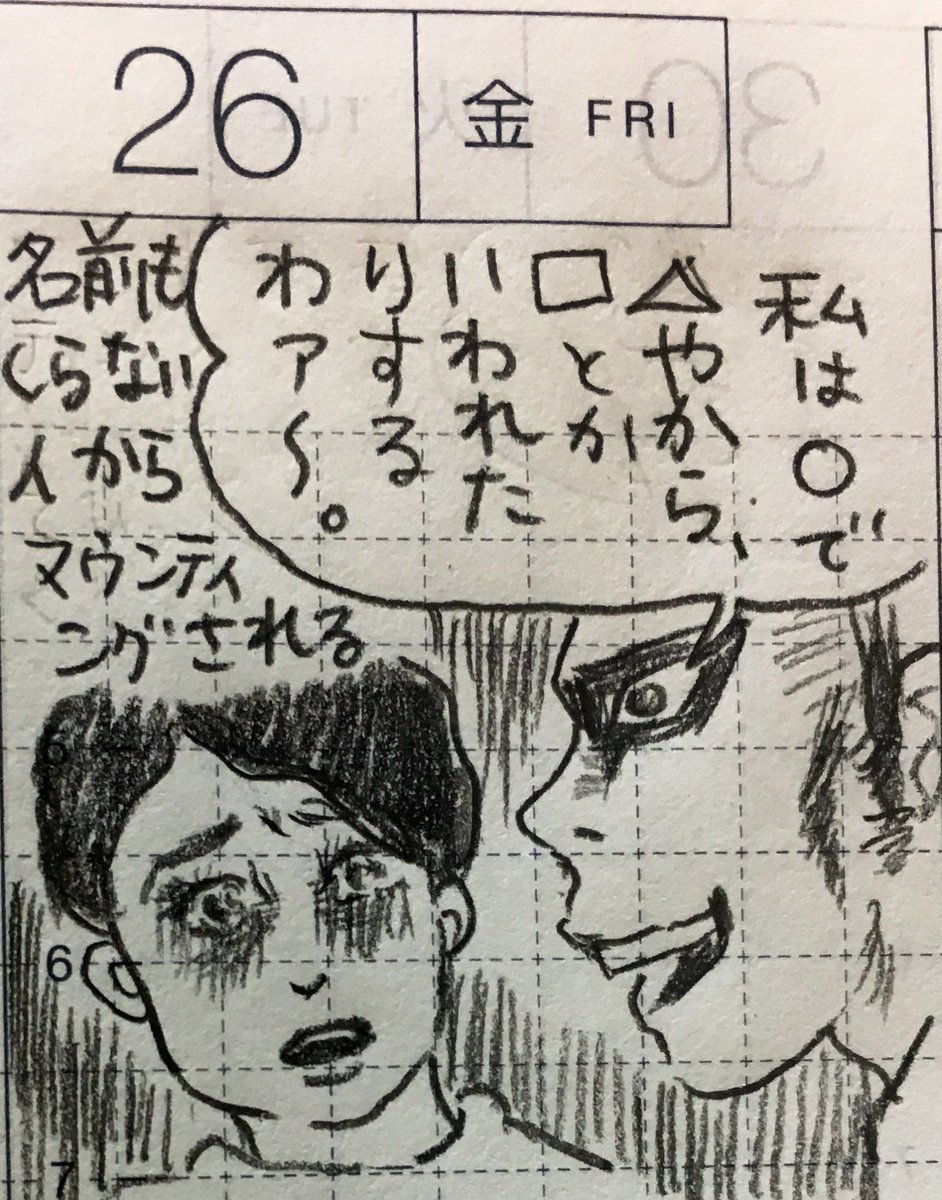 26
金 FRI
私は〇で
△やから、
□とか
いわれた
りする
わァ〜。
名前も
しらない
人から
マウンティ
ングされる
6
7